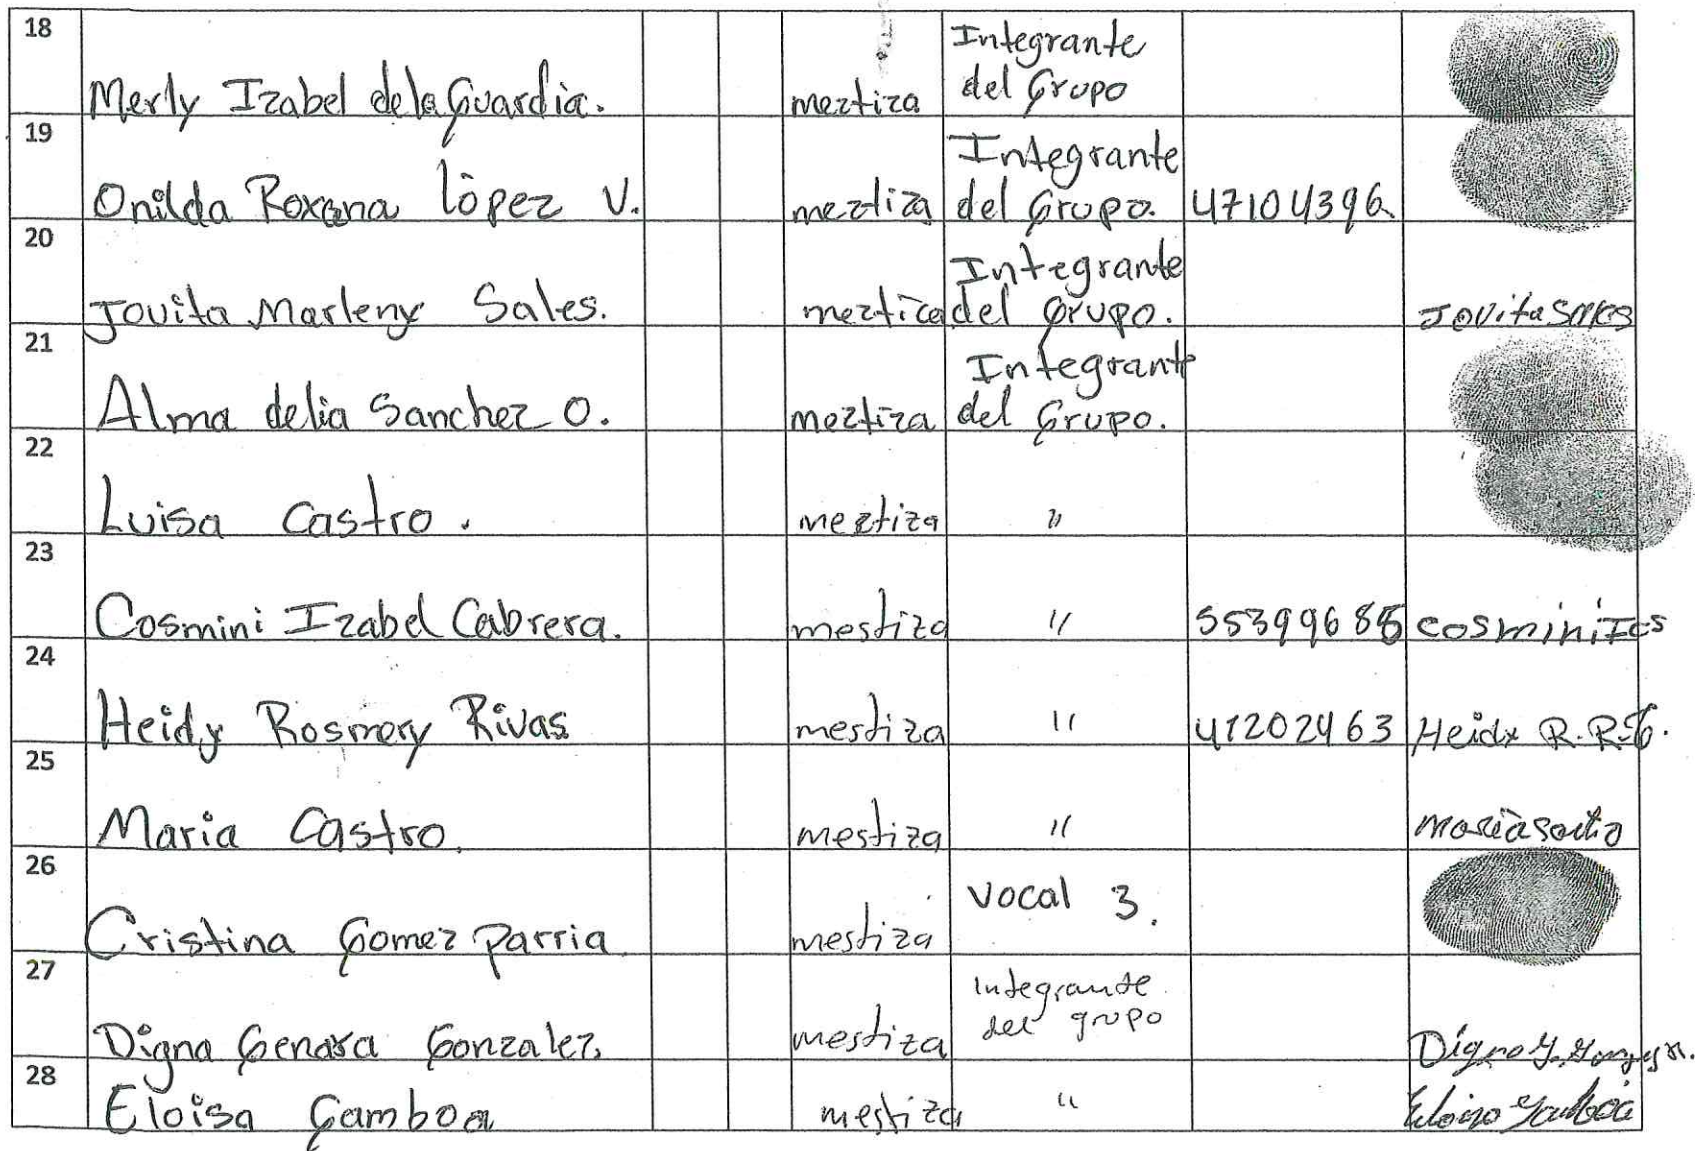 18 Merly Izabel dela Guardia. meztiza Integrante del Grupo
19 Onilda Roxana lòpez V. meztiza Integrante del Grupo. 47104396
20 Jovita Marleny Sales. meztica Integrante del Grupo. Jovita Sales
21 Alma delia Sanchez O. meztiza Integrante del Grupo.
22 Luisa Castro. meztiza "
23 Cosmini Izabel Cabrera. mestiza " cosmini Ics
24 Heidy Rosmery Rivas mestiza " 41202463 Heidy R. R.
25 Maria Castro. mestiza "
26 Cristina Gomez parria mestiza vocal 3.
27 Digna Genara Gonzalez. mestiza integrante del grupo
28 Eloisa Gamboa mestiza " Eloisa Gamboa